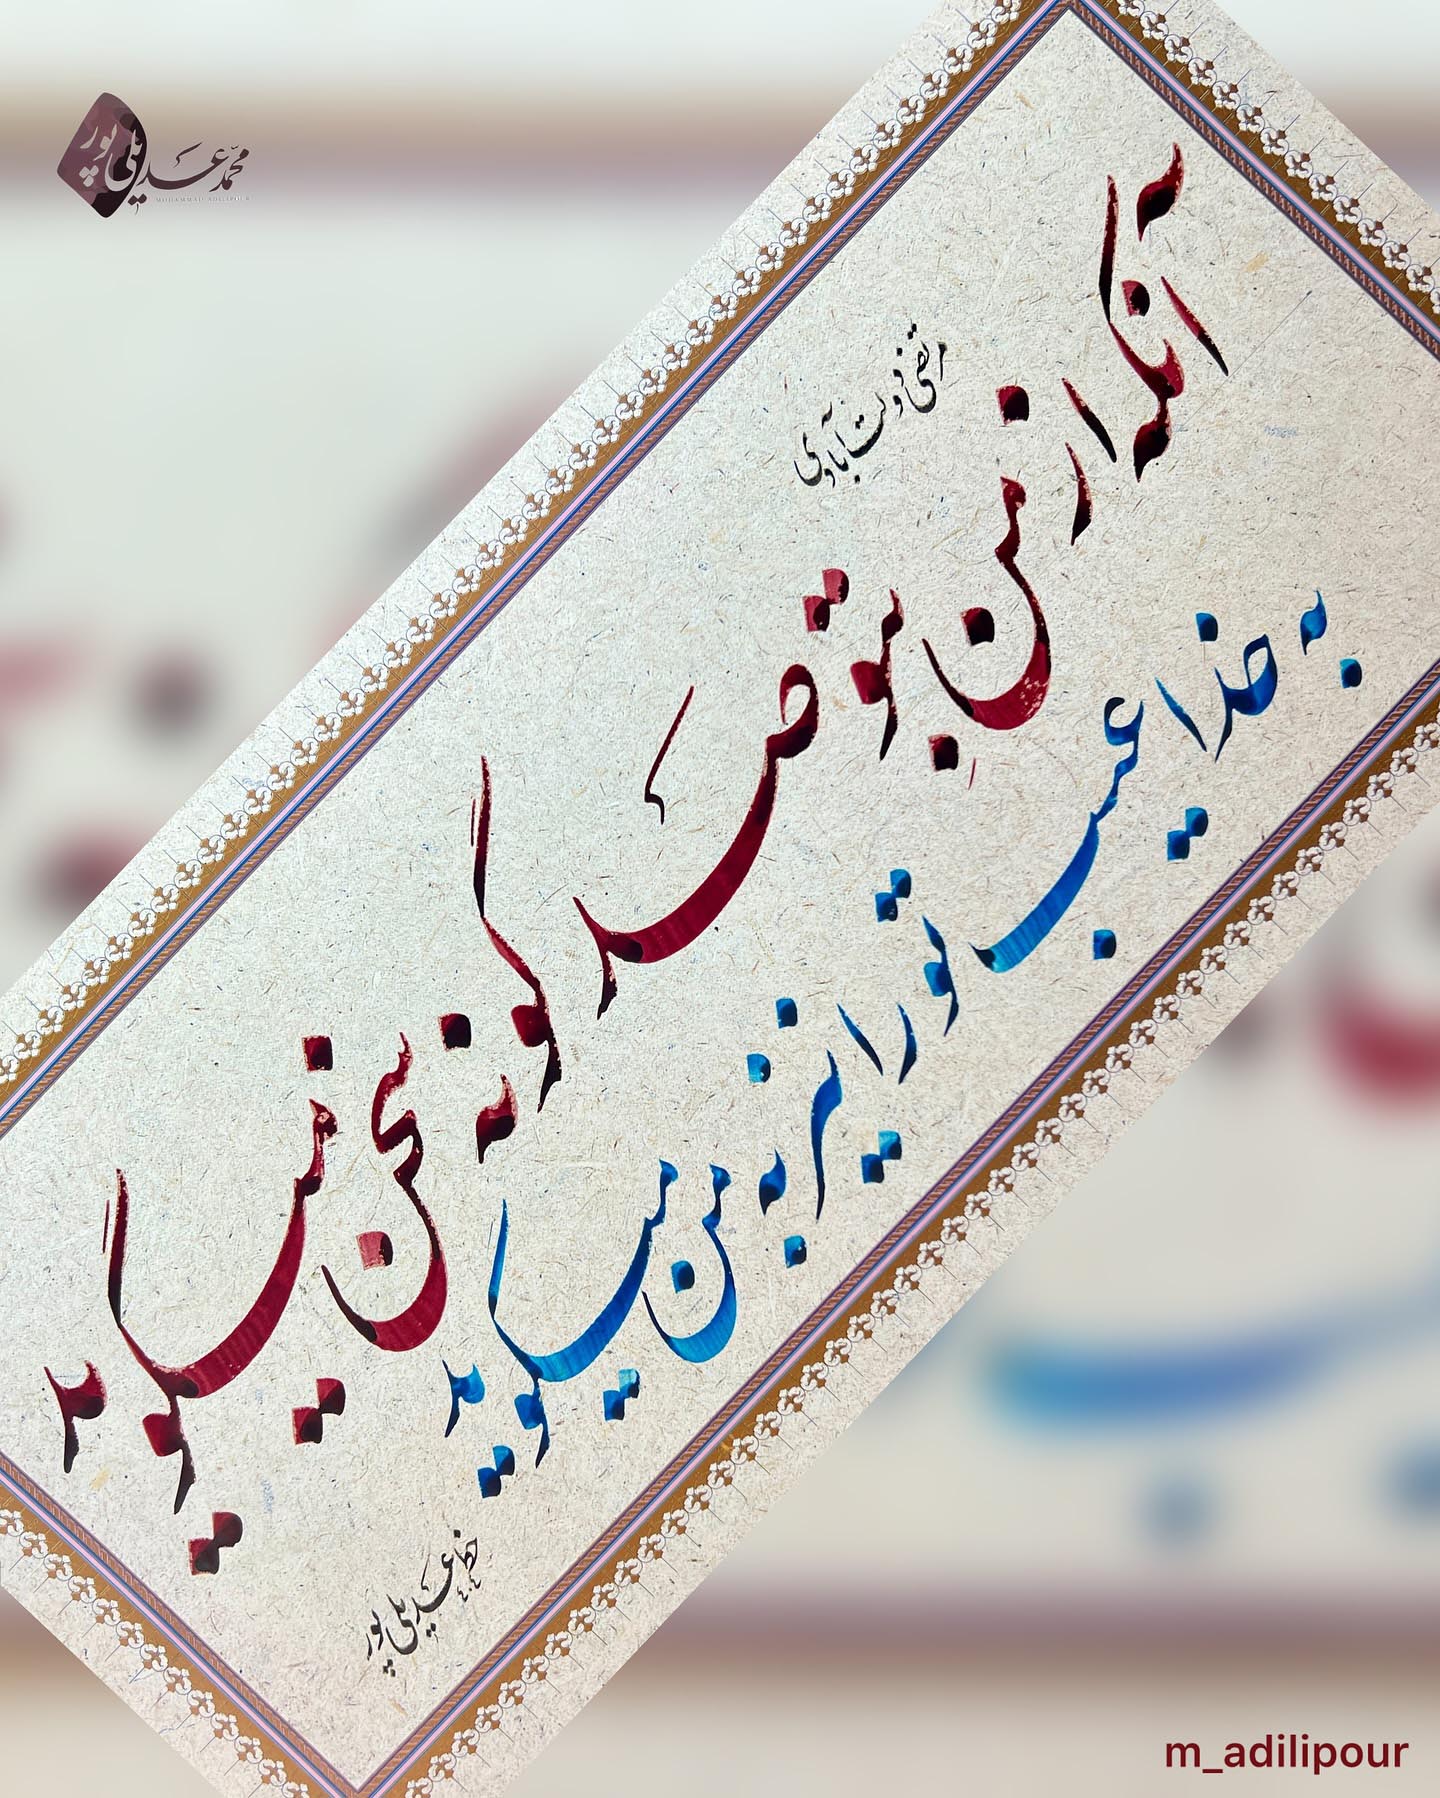 محمد عدیلی پور
MOHAMMAD ADILIPOUR
آنکه از من به تو صد گونه سخن میگوید
مرتضی دولت آبادی
به خدا عیب تو را نیز به من میگوید
خط عدیلی پور
m_adilipour